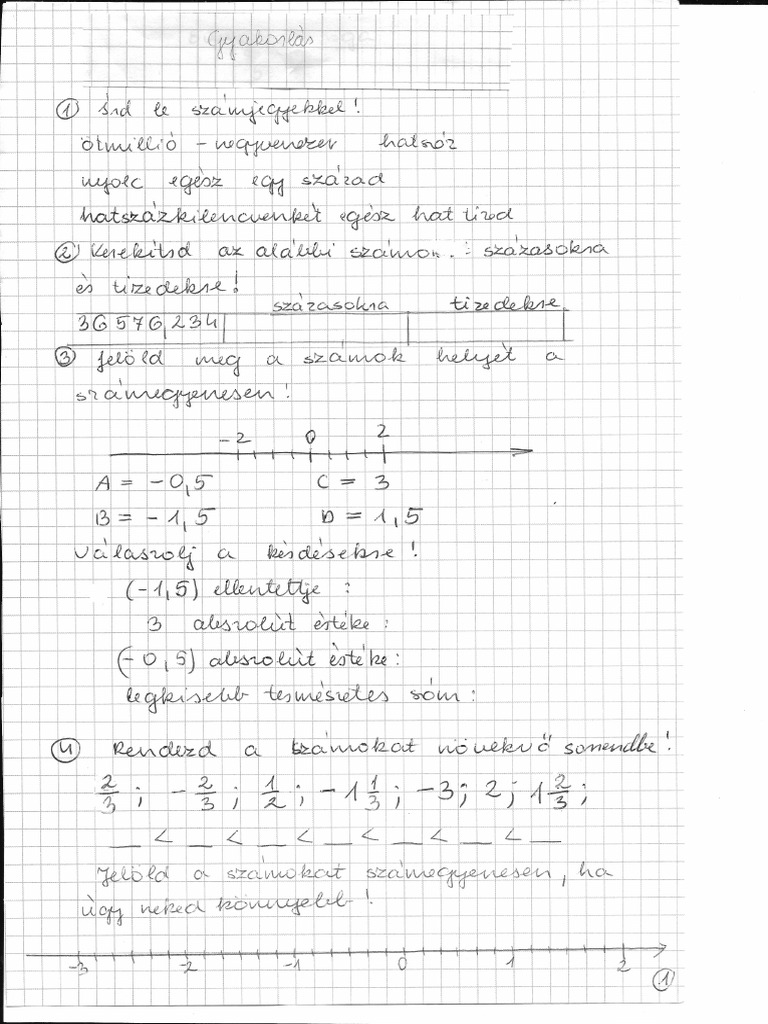 Gyakorlás
① Írd le számjegyekkel!
ötmillió - negyvenezer hatszáz
nyolc egész egy század
hatszázkilencvenkét egész hat tized
② Kerekítsd az alábbi számot : százasokra
és tizedekre!
százasokra tizedekre
36 576,234
③ Jelöld meg a számok helyét a
számegyenesen!
-2 0 2
A = -0,5 C = 3
B = -1,5 D = 1,5
Válaszolj a kérdésekre!
(-1,5) ellentettje :
3 abszolút értéke :
(-0,5) abszolút értéke :
legkisebb természetes szám :
④ Rendezd a számokat növekvő sorrendbe!
2/3 ; -2/3 ; 1/2 ; -1 1/3 ; -3 ; 2 ; 1 2/3 ;
_ < _ < _ < _ < _ < _ < _
Jelöld a számokat számegyenesen, ha
úgy neked könnyebb!
-3 -2 -1 0 1 2
①